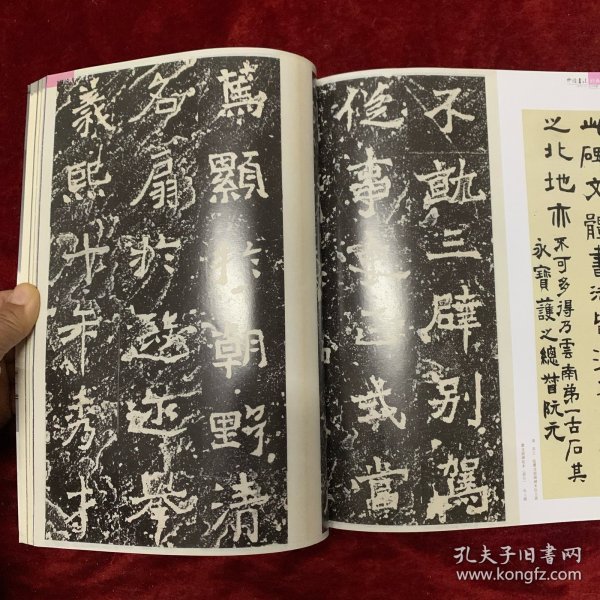 中國書法
此碑文體書法皆漢
之北地亦不可多得乃雲南第一古石其
永寶護之總督阮元
不就三辟別駕
從事史正式當
篤顯於朝野清
名扇於遐迩舉
義熙十年秀才
孔夫子旧书网
www.kongfz.com